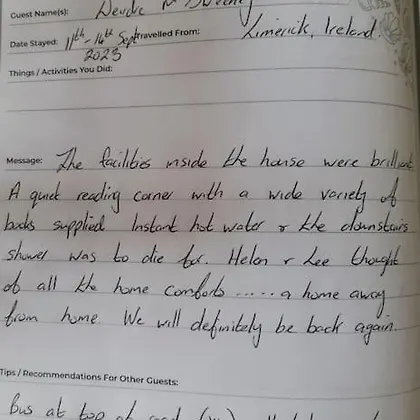 Guest Name(s): Deirdre M Sweeney
Date Stayed: 11th - 14th Sept Travelled From: Limerick, Ireland
2023
Things / Activities You Did:
Message: The facilities inside the house were brilliant
A quiet reading corner with a wide variety of
books supplied Instant hot water & the downstairs
shower was to die for. Helen & Lee thought
of all the home comforts ..... a home away
from home. We will definitely be back again.
Tips / Recommendations For Other Guests:
Bus at top of road